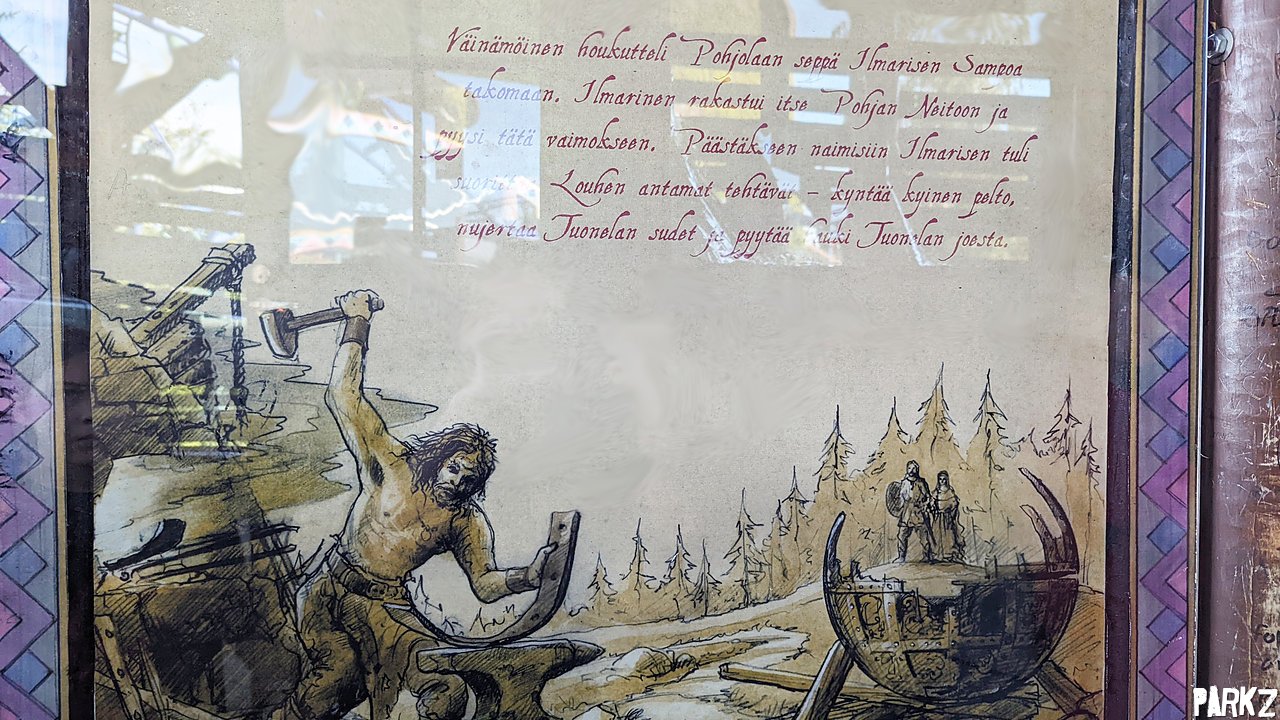 Väinämöinen houkutteli Pohjolaan seppä Ilmarisen Sampoa
takomaan. Ilmarinen rakastui itse Pohjan Neitoon ja
pyysi tätä vaimokseen. Päästäkseen naimisiin Ilmarisen tuli
suorittaa Louhen antamat tehtävät – kyntää kyinen pelto,
nujertaa Tuonelan sudet ja pyytää hauki Tuonelan joesta.
PARKZ